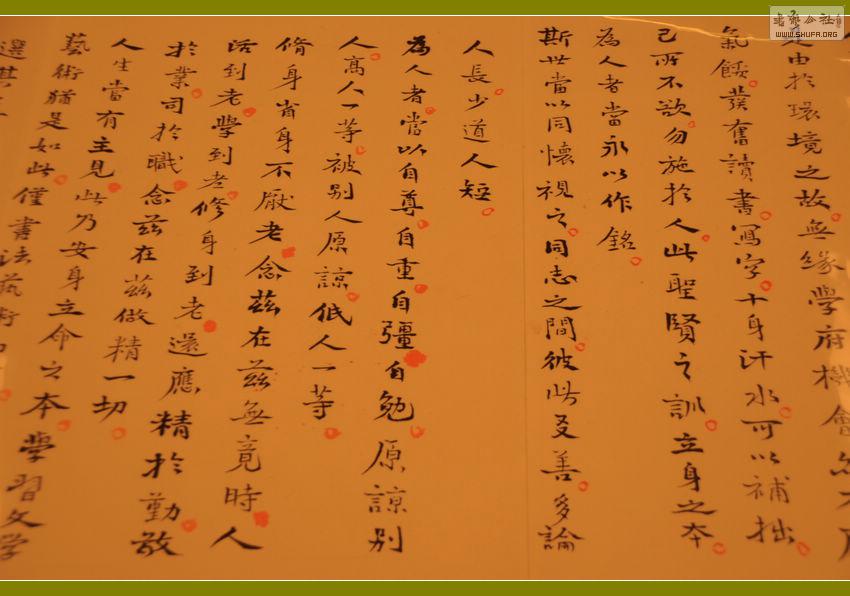 是由於環境之故無緣學府機會
氣餒發奮讀書寫字十身汗水可以補拙
己所不欲勿施於人此聖賢之訓立身之本
為人者當永以作銘
斯世當以同懷視之同志之間彼此友善多論
人長少道人短
為人者當以自尊自重自彊自勉原諒別
人高人一等被別人原諒低人一等
脩身省身不厭老念茲在茲無竟時人
活到老學到老修身到老還應精於勤敬
於業司於職念茲在茲做精一切
人生當有主見此乃安身立命之本學習文學
藝術猶是如此僅書法藝術
選其
書法公社
WWW.SHUFA.ORG